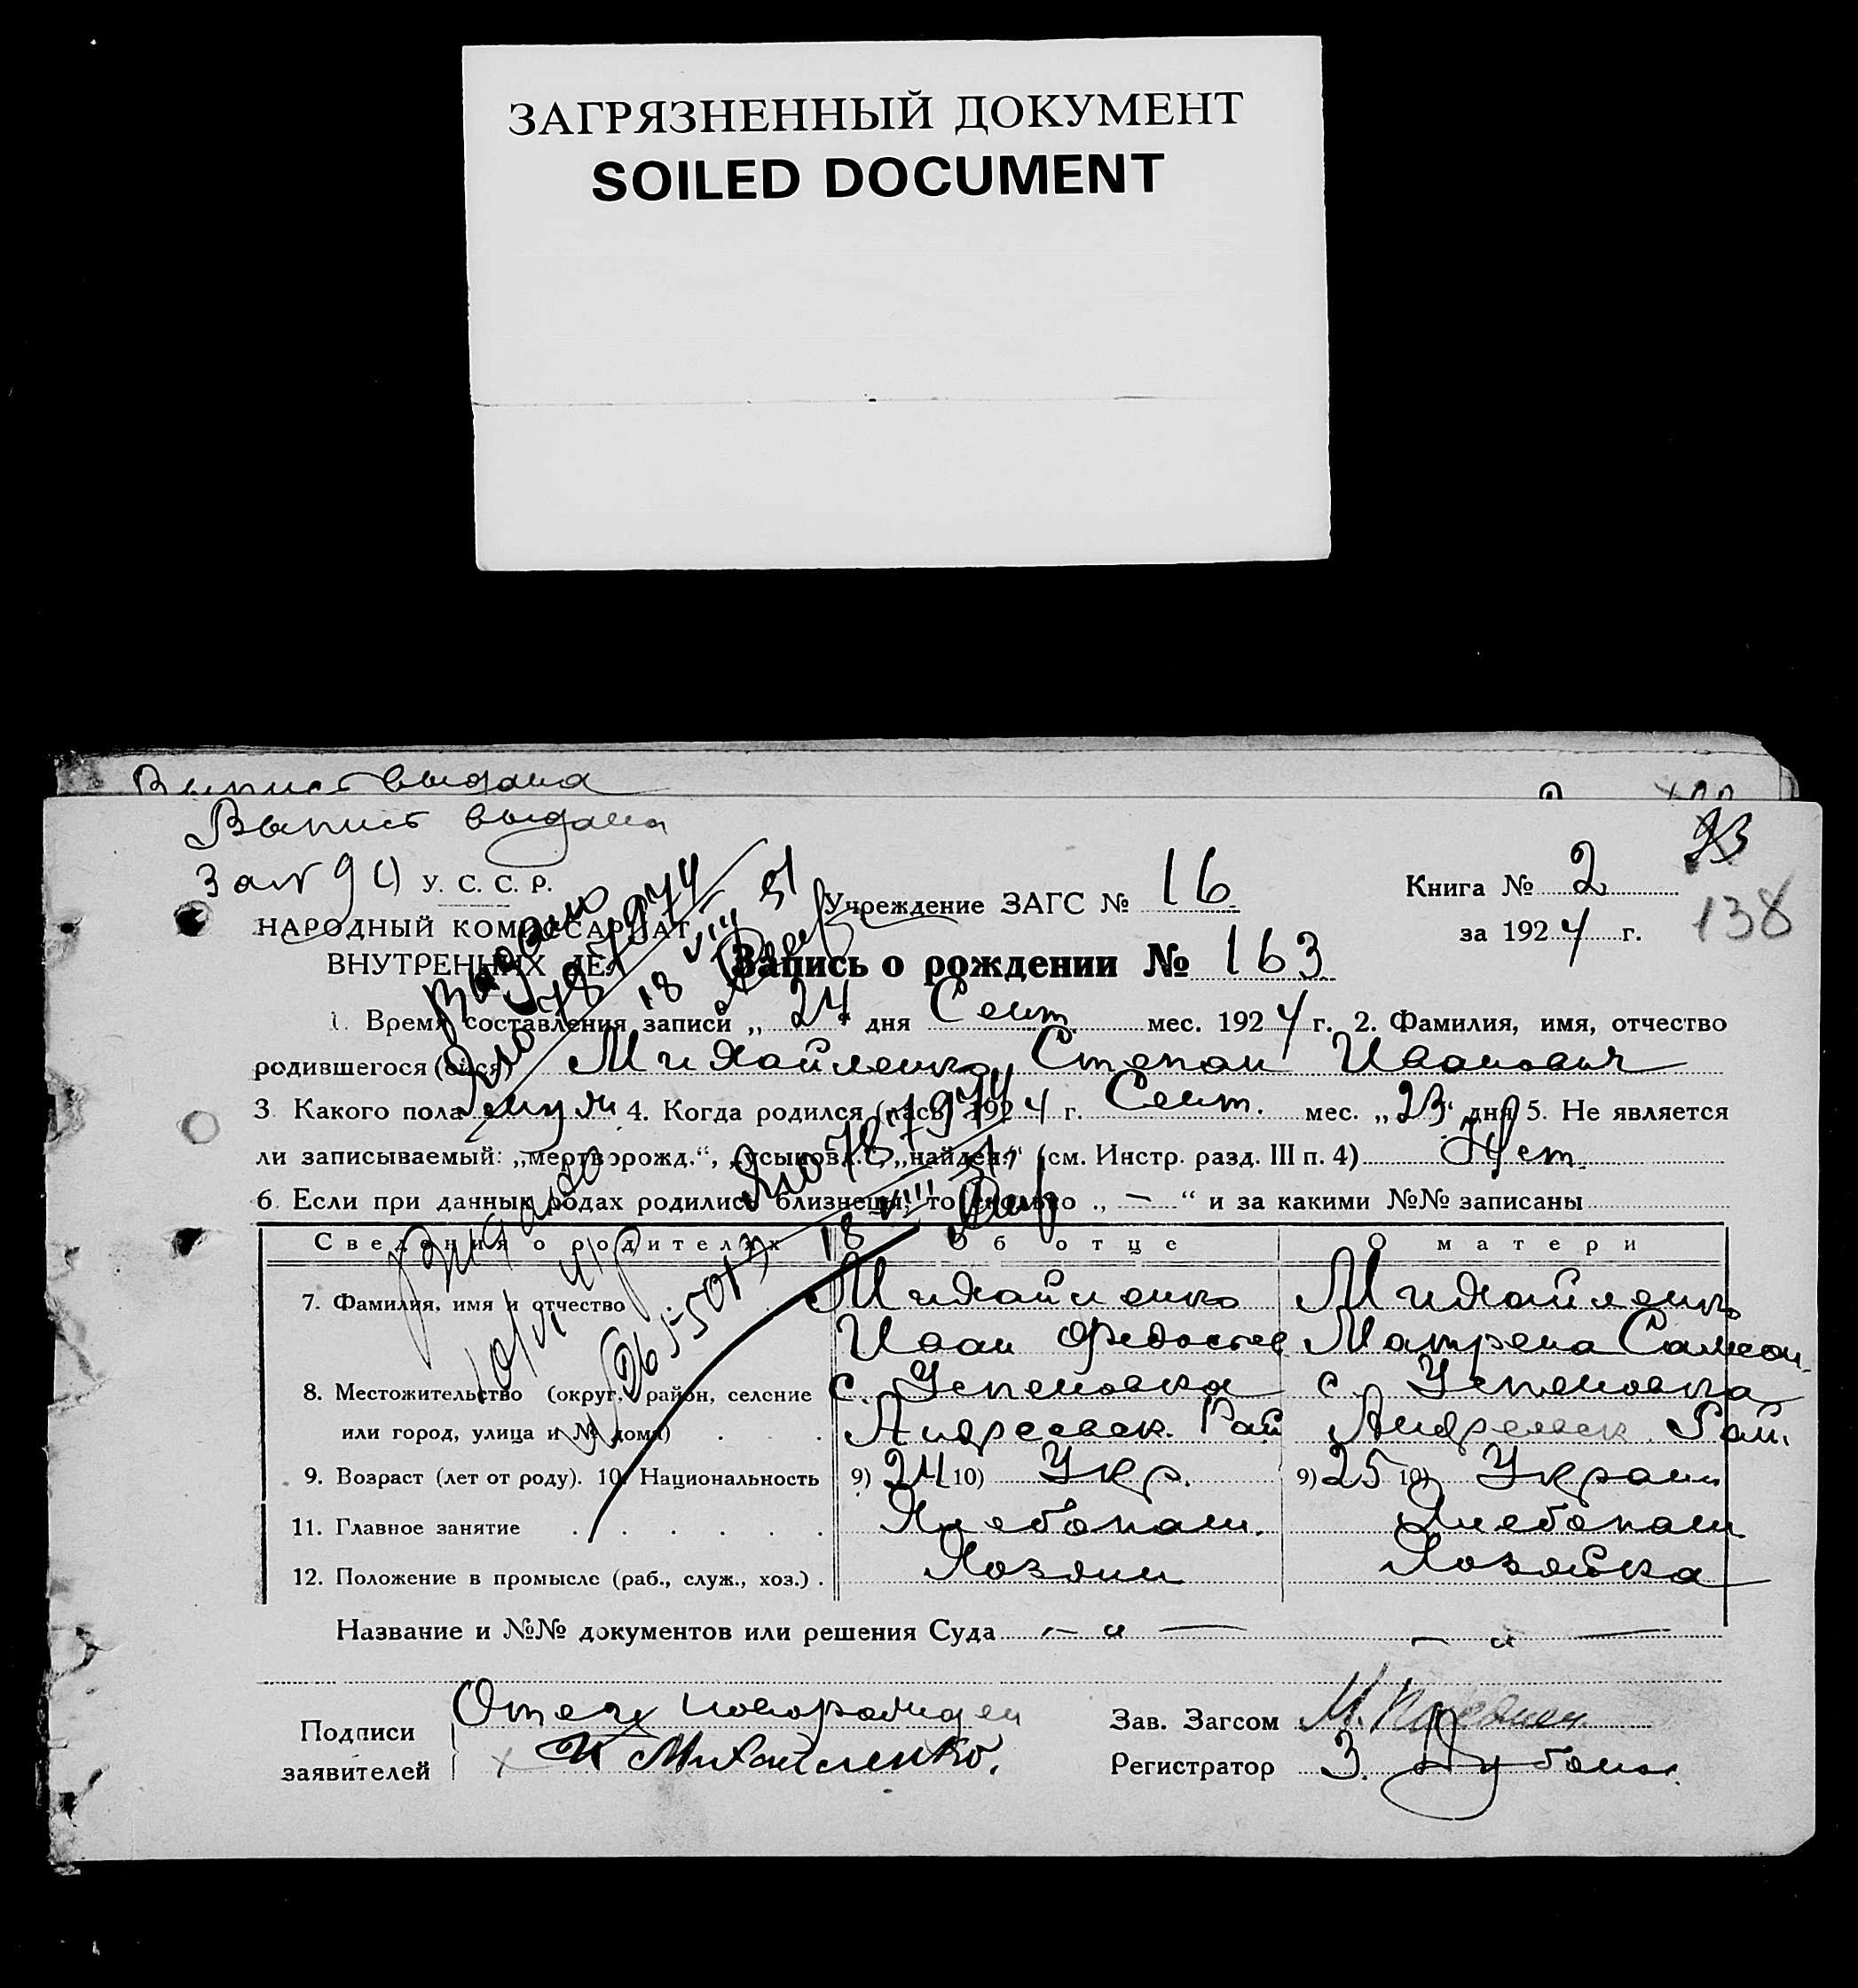 ЗАГРЯЗНЕННЫЙ ДОКУМЕНТ
SOILED DOCUMENT
Выпись выдана
Выпись выдана
У. С. С. Р.
НАРОДНЫЙ КОМИССАРИАТ
ВНУТРЕННИХ ДЕЛ
Учреждение ЗАГС № 16
Книга № 2
за 1924 г.
138
Запись о рождении № 163
1. Время составления записи „24“ дня Сент. мес. 1924 г. 2. Фамилия, имя, отчество
родившегося (ейся) Михайленко Степан Иванович
3. Какого пола муж. 4. Когда родился (лась) 1924 г. Сент. мес. „23“ дня 5. Не является
ли записываемый: „мертворожд.“, „усыновл.“, „найден.“ (см. Инстр. разд. III п. 4) Нет.
6. Если при данных родах родились близнецы, то сколько „—“ и за какими №№ записаны
Сведения о родителях Об отце О матери
7. Фамилия, имя и отчество Михайленко Михайленко
Иван Матрена Самсон.
8. Местожительство (округ, район, селение с. Успеновка с. Успеновка
или город, улица и № дома) Андреевск. Рай Андреевск. Рай.
9. Возраст (лет от роду). 10. Национальность 9) 24 10) Укр. 9) 25 10) Украин
11. Главное занятие Хлебопаш. Хлебопаш
12. Положение в промысле (раб., служ., хоз.) Хозяин Хозяйка
Название и №№ документов или решения Суда — „ — — „ —
Подписи
заявителей
Отец новорожден
И Михайленко.
Зав. Загсом
Регистратор З.
Выдано
18 VIII 51
18 VIII 51